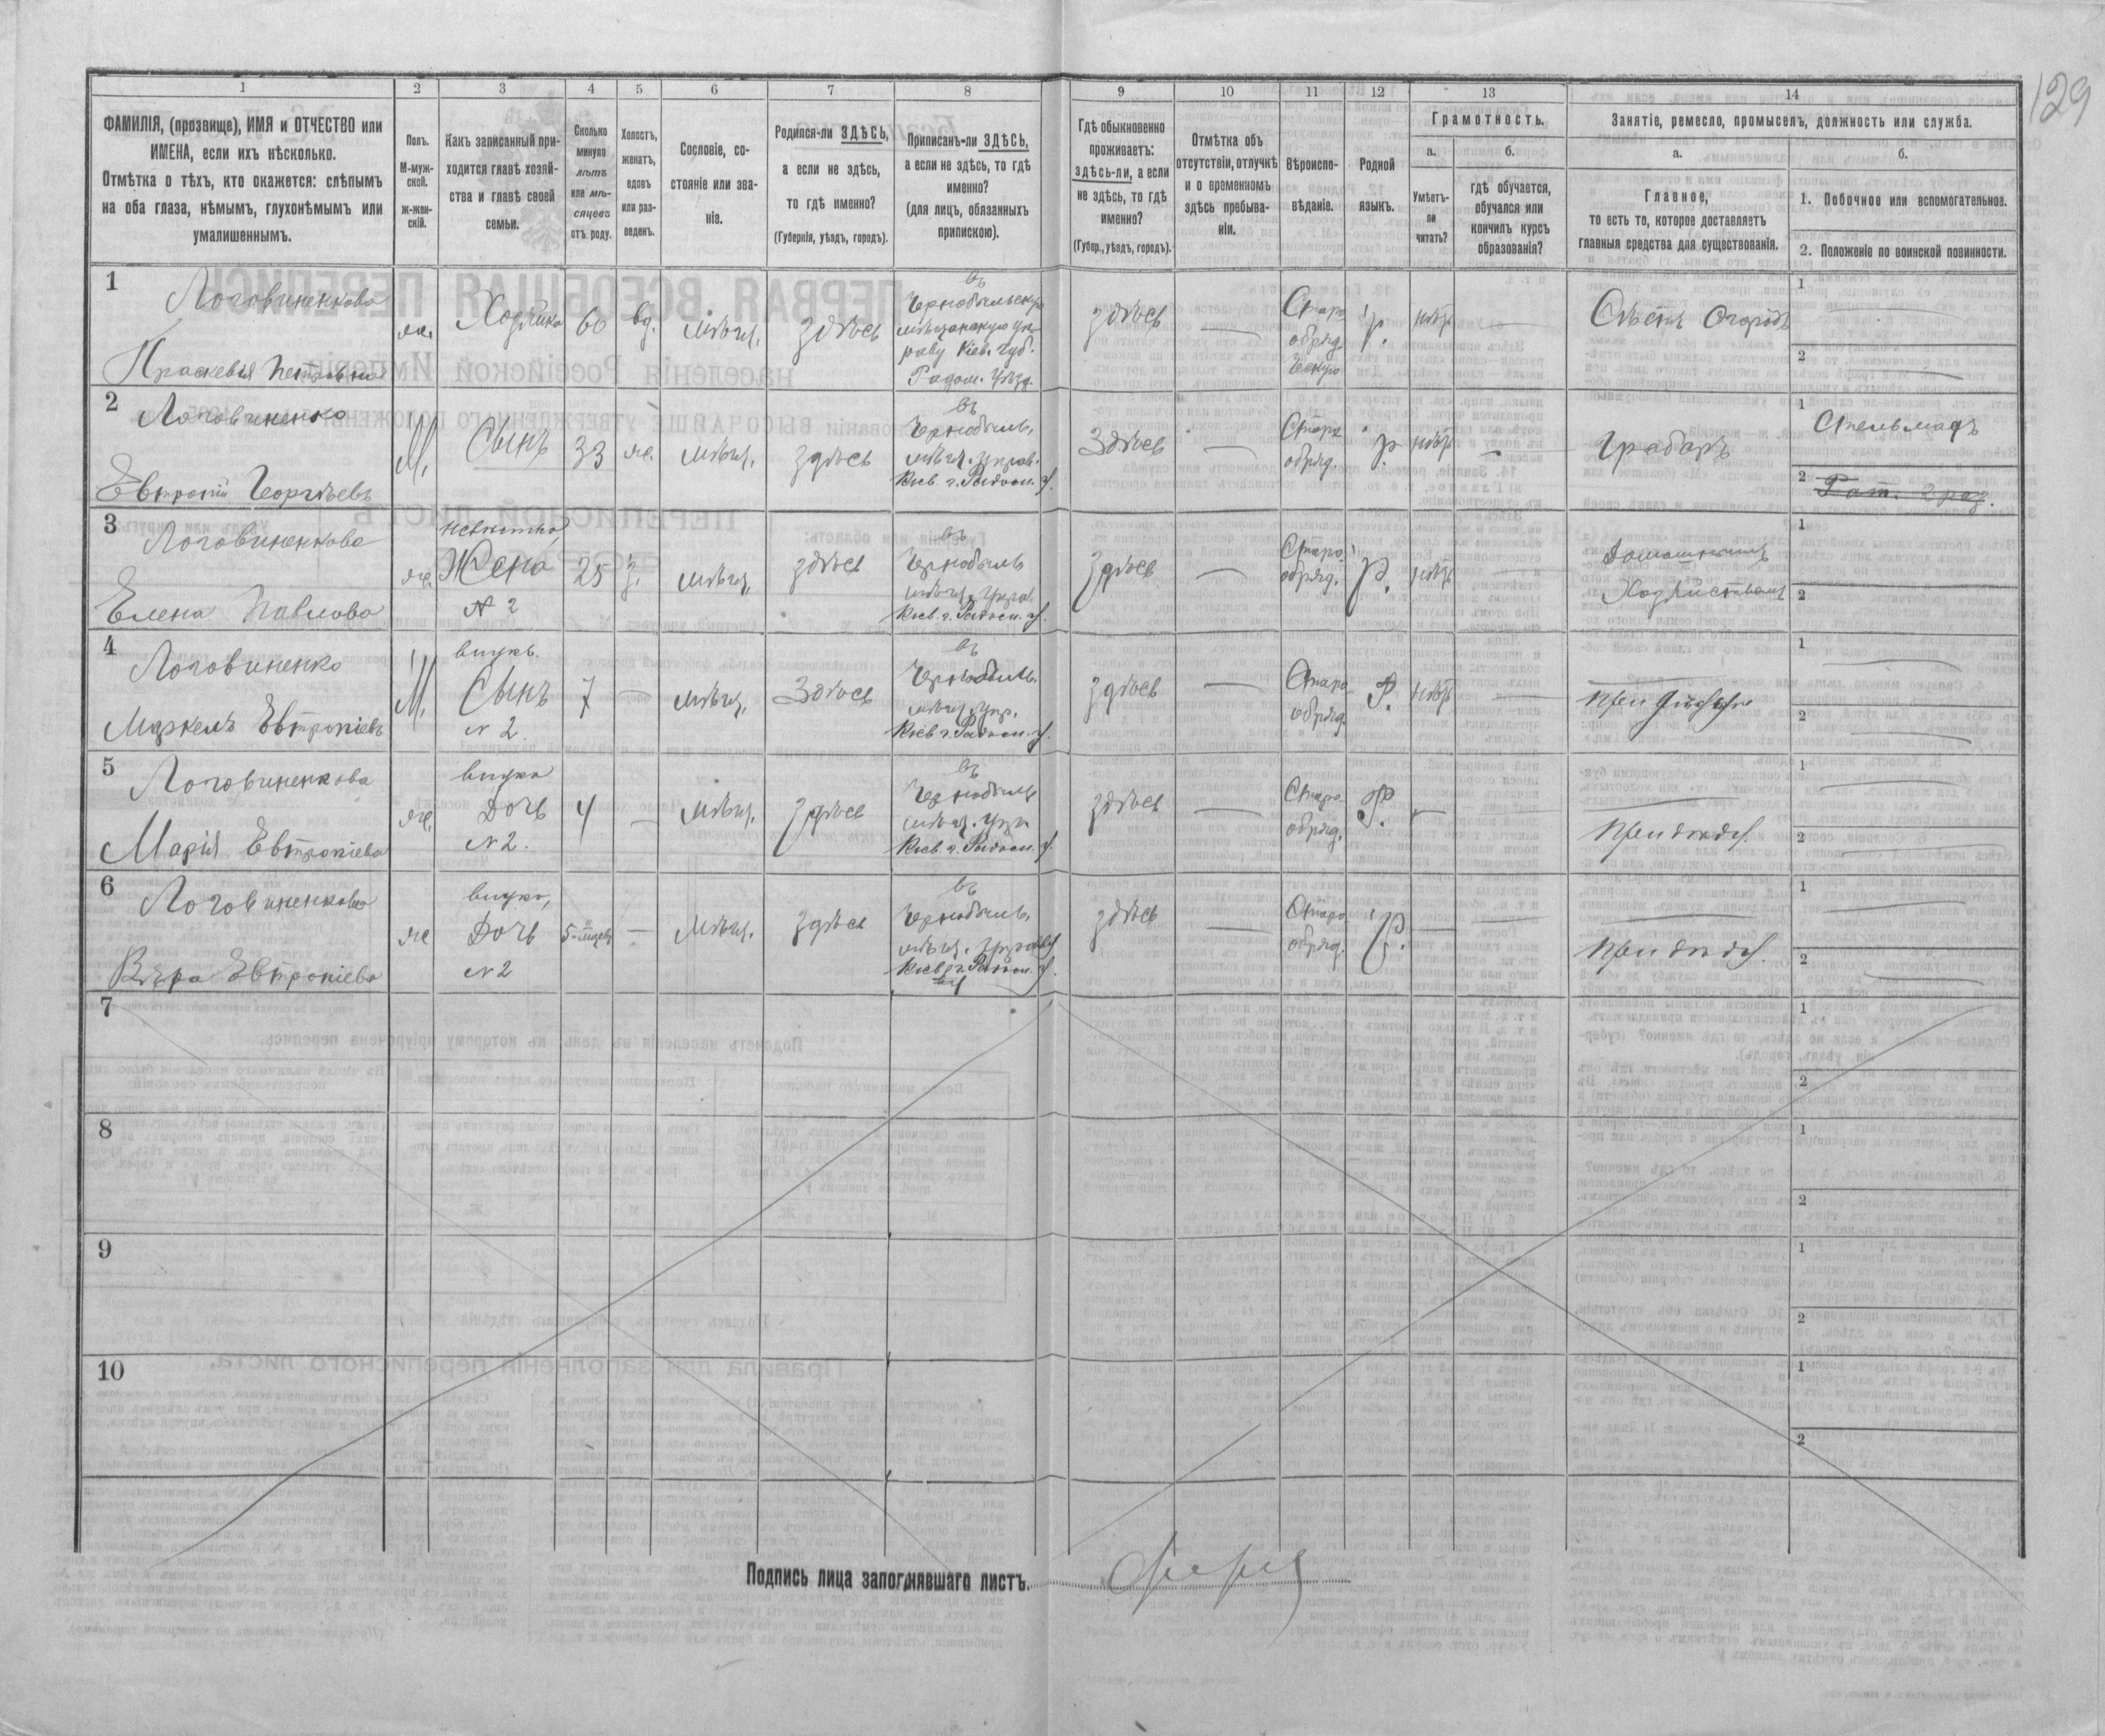 129
1
2
3
4
5
6
7
8
9
10
11
12
13
14
ФАМИЛІЯ, (прозвище), ИМЯ и ОТЧЕСТВО или
ИМЕНА, если ихъ нѣсколько.
Отмѣтка о тѣхъ, кто окажется: слѣпымъ
на оба глаза, нѣмымъ, глухонѣмымъ или
умалишеннымъ.
Полъ.
М-муж-
ской.
ж-жен-
скій.
Какъ записанный при-
ходится главѣ хозяй-
ства и главѣ своей
семьи.
Сколько
минуло
лѣтъ
или мѣ-
сяцевъ
отъ роду.
Холостъ,
женатъ,
вдовъ
или раз-
веденъ.
Сословіе, со-
стояніе или зва-
ніе.
Родился-ли ЗДѢСЬ,
а если не здѣсь,
то гдѣ именно?
(Губернія, уѣздъ, городъ).
Приписанъ-ли ЗДѢСЬ,
а если не здѣсь, то гдѣ
именно?
(для лицъ, обязанныхъ
припискою).
Гдѣ обыкновенно
проживаетъ:
здѣсь-ли, а если
не здѣсь, то гдѣ
именно?
(Губер., уѣздъ, городъ).
Отмѣтка объ
отсутствіи, отлучкѣ
и о временномъ
здѣсь пребыва-
ніи.
Вѣроиспо-
вѣданіе.
Родной
языкъ.
Грамотность.
а.
Умѣетъ-
ли
читать?
б.
гдѣ обучается,
обучался или
кончилъ курсъ
образованія?
Занятіе, ремесло, промыселъ, должность или служба.
а.
Главное,
то есть то, которое доставляетъ
главныя средства для существованія.
б.
1. Побочное или вспомогательное.
2. Положеніе по воинской повинности.
1
Логовиненкова
Праскевія Петровна
же.
Хозяйка
60
вд.
мѣщ.
здѣсь
въ
Чернобыльскую
мѣщанскую уп-
раву Кіев. губ.
Радом. уѣзд.
здѣсь
Старо
обряд
ческую
р.
нѣтъ
Огородъ
1
2
2
Логовиненко
Евтропій Георгіевъ
М.
Сынъ
33
же.
мѣщ.
здѣсь
въ
Чернобыль.
мѣщ. управ.
Кіев. г. Радом. у.
Здѣсь
Старо
обряд.
р.
нѣтъ
Грабаръ
1
Стельмахъ
2
Рат. 2 раз.
3
Логовиненкова
Елена Павлова
же.
невѣстка,
Жена
N 2
25
з.
мѣщ.
здѣсь
въ
Чернобыль
мѣщ. упра.
Кіев. г. Радом. у.
здѣсь
Старо
обряд.
р.
нѣтъ
Домашнимъ
Хозяйствомъ
1
2
4
Логовиненко
Маркелъ Евтропіевъ
М.
внукъ.
Сынъ
N 2.
7
мѣщ.
Здѣсь
въ
Чернобыль.
мѣщ. упр.
Кіев г. Радом. у.
здѣсь
Старо
обряд
Р.
нѣтъ
1
2
5
Логовиненкова
Марія Евтропіева
же.
внука
Дочь
N 2.
4
мѣщ.
здѣсь
въ
Чернобыль
мѣщ. упр.
Кіев. г. Радом. у.
здѣсь
Старо
обряд.
Р.
1
2
6
Логовиненкова
Вѣра Евтропіева
же
внука,
Дочь
N 2
мѣщ.
здѣсь
въ
Чернобыль.
мѣщ. управ.
Кіев. г. Радом. у.
здѣсь
Старо
обряд.
Р.
1
2
7
1
2
8
1
2
9
1
2
10
1
2
Подпись лица заполнявшаго листъ.